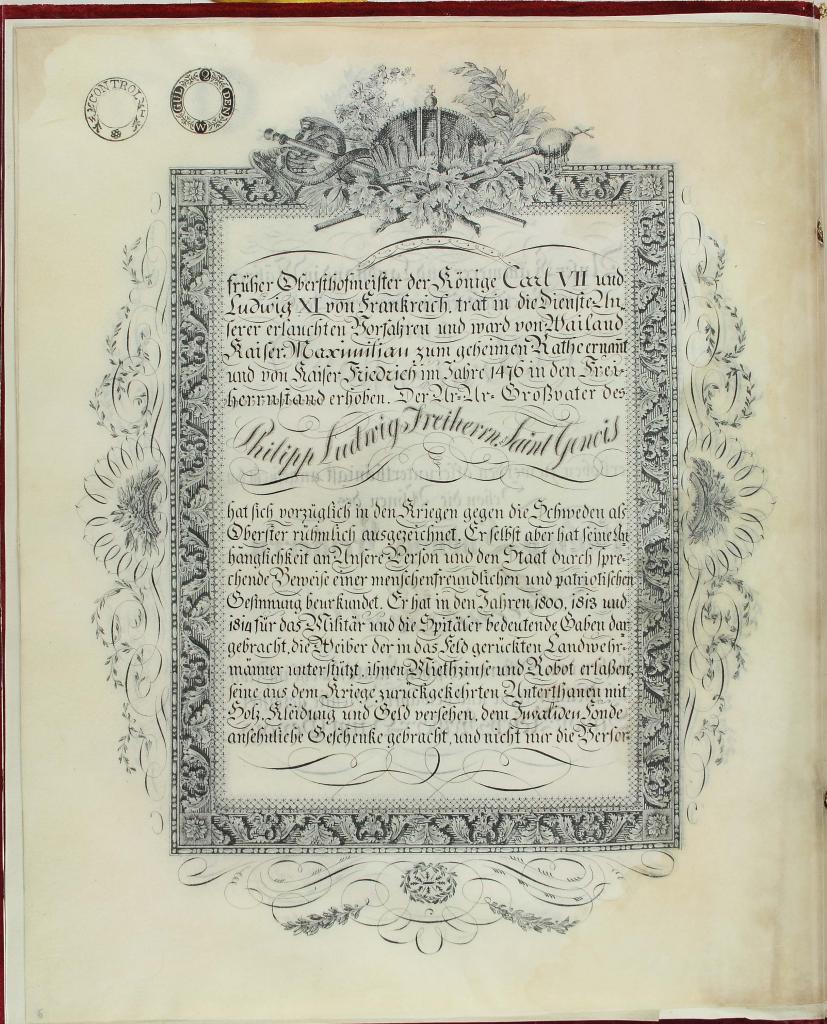 CONTROLL
2 GULDEN W
früher Obersthofmeister der Könige Carl VII und
Ludwig XI von Frankreich, trat in die Dienste Un-
serer erlauchten Vorfahren und ward von Wailand
Kaiser Maximilian zum geheimen Rathe ernannt
und von Kaiser Friedrich im Jahre 1476 in den Frei-
herrnstand erhoben. Der Ur-Ur-Großvater des
Philipp Ludwig Freiherrn Saint Genois
hat sich vorzüglich in den Kriegen gegen die Schweden als
Oberster rühmlich ausgezeichnet. Er selbst aber hat seine An-
hänglichkeit an Unsere Person und den Staat durch spre-
chende Beweise einer menschenfreundlichen und patriotischen
Gesinnung beurkundet. Er hat in den Jahren 1800, 1813 und
1814 für das Militär und die Spitäler bedeutende Gaben dar-
gebracht, die Weiber der in das Feld gerückten Landwehr-
männer unterstützt, ihnen Miethzinse und Robot erlaßen,
seine aus dem Kriege zurückgekehrten Unterthanen mit
Holz, Kleidung und Geld versehen, dem Invaliden Fonde
ansehnliche Geschenke gebracht, und nicht nur die Versor-
6